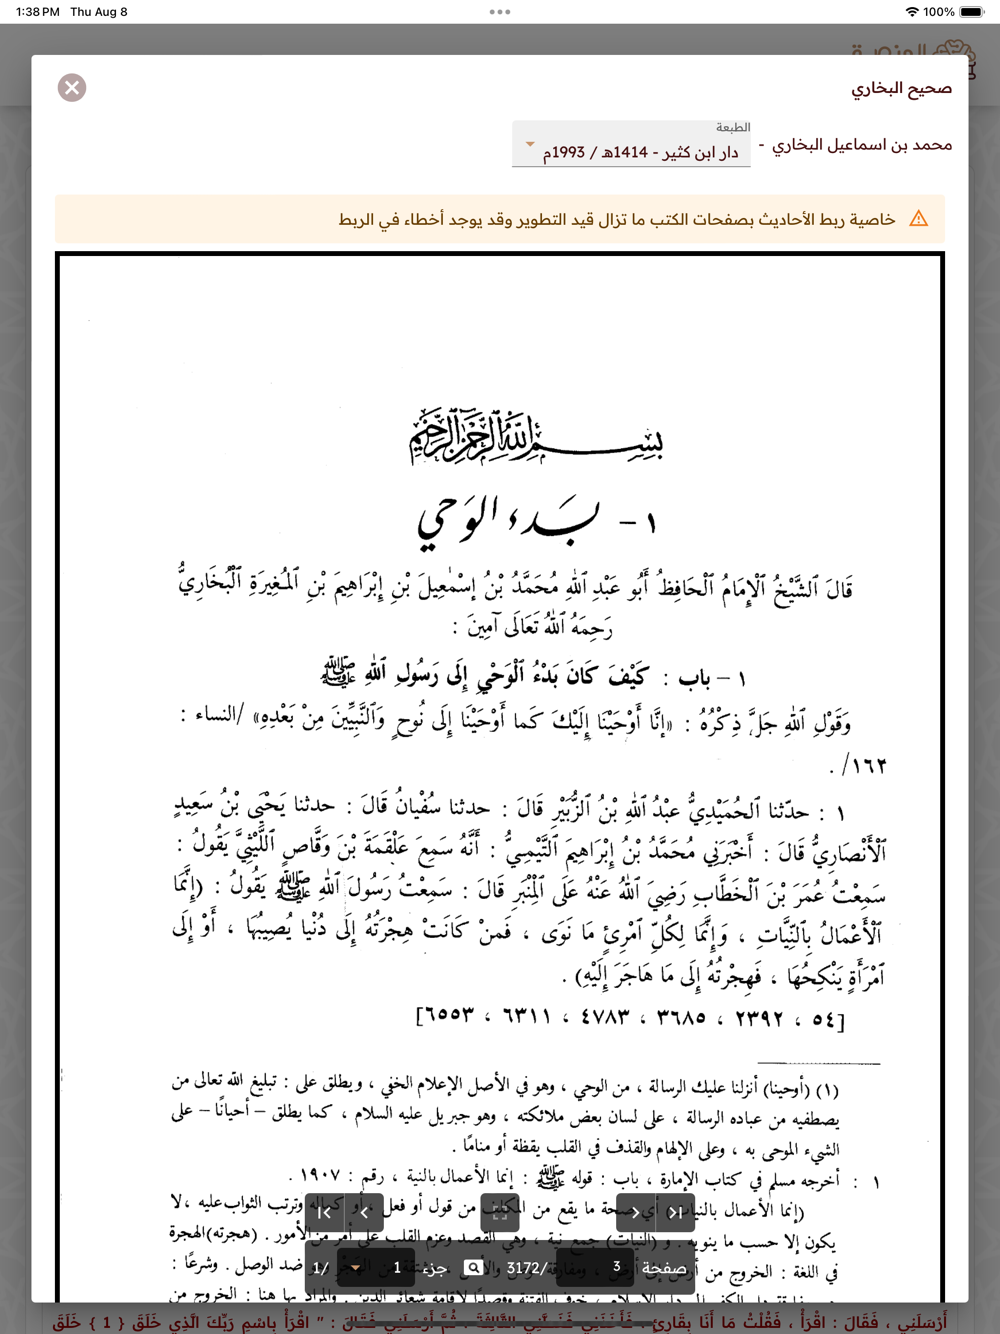 1:38 PM Thu Aug 8
100%
صحيح البخاري
محمد بن اسماعيل البخاري -
الطبعة
دار ابن كثير - 1414هـ / 1993م
خاصية ربط الأحاديث بصفحات الكتب ما تزال قيد التطوير وقد يوجد أخطاء في الربط
بِسْمِ اللَّهِ الرَّحْمَنِ الرَّحِيمِ
١ - بَدء الوَحي
قَالَ ٱلشَّيْخُ ٱلْإِمَامُ ٱلْحَافِظُ أَبُو عَبْدِ ٱللهِ مُحَمَّدُ بْنُ إِسْمٰعِيلَ بْنِ إِبْرَاهِيمَ بْنِ ٱلْمُغِيرَةِ ٱلْبُخَارِيُّ
رَحِمَهُ ٱللهُ تَعَالَى آمِينَ :
١ – باب : كَيْفَ كَانَ بَدْءُ ٱلْوَحْيِ إِلَى رَسُولِ ٱللهِ ﷺ
وَقَوْلِ ٱللهِ جَلَّ ذِكْرُهُ : «إِنَّا أَوْحَيْنَا إِلَيْكَ كَما أَوْحَيْنَا إِلَى نُوحٍ وَٱلنَّبِيِّينَ مِنْ بَعْدِهِ» /النساء :
١٦٣/ .
١ : حدّثنا ٱلْحُمَيْدِيُّ عَبْدُ ٱللهِ بْنُ ٱلزُّبَيْرِ قَالَ : حدثنا سُفْيانُ قَالَ : حدثنا يَحْيَى بْنُ سَعِيدٍ
ٱلْأَنْصَارِيُّ قَالَ : أَخْبَرَنِي مُحَمَّدُ بْنُ إِبْرَاهِيمَ ٱلتَّيْمِيُّ : أَنَّهُ سَمِعَ عَلْقَمَةَ بْنَ وَقَّاصٍ ٱللَّيْثِيَّ يَقُولُ :
سَمِعْتُ عُمَرَ بْنَ ٱلْخَطَّابِ رَضِيَ ٱللهُ عَنْهُ عَلَى ٱلْمِنْبَرِ قَالَ : سَمِعْتُ رَسُولَ ٱللهِ ﷺ يَقُولُ : (إِنَّمَا
ٱلْأَعْمَالُ بِٱلنِّيَّاتِ ، وَإِنَّمَا لِكُلِّ ٱمْرِئٍ مَا نَوَى ، فَمنْ كَانَتْ هِجْرَتُهُ إِلَى دُنْيا يُصِيبُهَا ، أَوْ إِلَى
ٱمْرَأَةٍ يَنْكِحُهَا ، فَهِجْرَتُهُ إِلَى مَا هَاجَرَ إِلَيْهِ) .
[٥٤ ، ٢٣٩٢ ، ٣٦٨٥ ، ٤٧٨٣ ، ٦٣١١ ، ٦٥٥٣]
(١) (أوحينا) أنزلنا عليك الرسالة ، من الوحي ، وهو في الأصل الإعلام الخفي ، ويطلق على : تبليغ الله تعالى من
يصطفيه من عباده الرسالة ، على لسان بعض ملائكته ، وهو جبريل عليه السلام ، كما يطلق – أحيانًا – على
الشيء الموحى به ، وعلى الإلهام والقذف في القلب يقظة أو منامًا .
١ : أخرجه مسلم في كتاب الإمارة ، باب : قوله ﷺ : إنما الأعمال بالنية ، رقم : ١٩٠٧ .
(إنما الأعمال بالنيات) أي صحة ما يقع من المكلف من قول أو فعل ، أو كماله وترتب الثواب عليه ، لا
يكون إلا حسب ما ينويه . و (النيات) جمع نية ، وهي القصد وعزم القلب على أمر من الأمور . (هجرته) الهجرة
في اللغة : الخروج من أرض إلى أرض ، ومفارقة الوطن والأهل ، مشتقة من الهَجْر ضد الوصل . وشرعًا :
صفحة 3 /3172 جزء 1 /1
أَرْسَلَنِي ، فَقَالَ : اقْرَأْ ، فَقُلْتُ مَا أَنَا بِقَارِئٍ ، فَأَخَذَنِي فَغَطَّنِي الثَّالِثَةَ ، ثُمَّ أَرْسَلَنِي فَقَالَ : " اقْرَأْ بِاسْمِ رَبِّكَ الَّذِي خَلَقَ { 1 } خَلَقَ